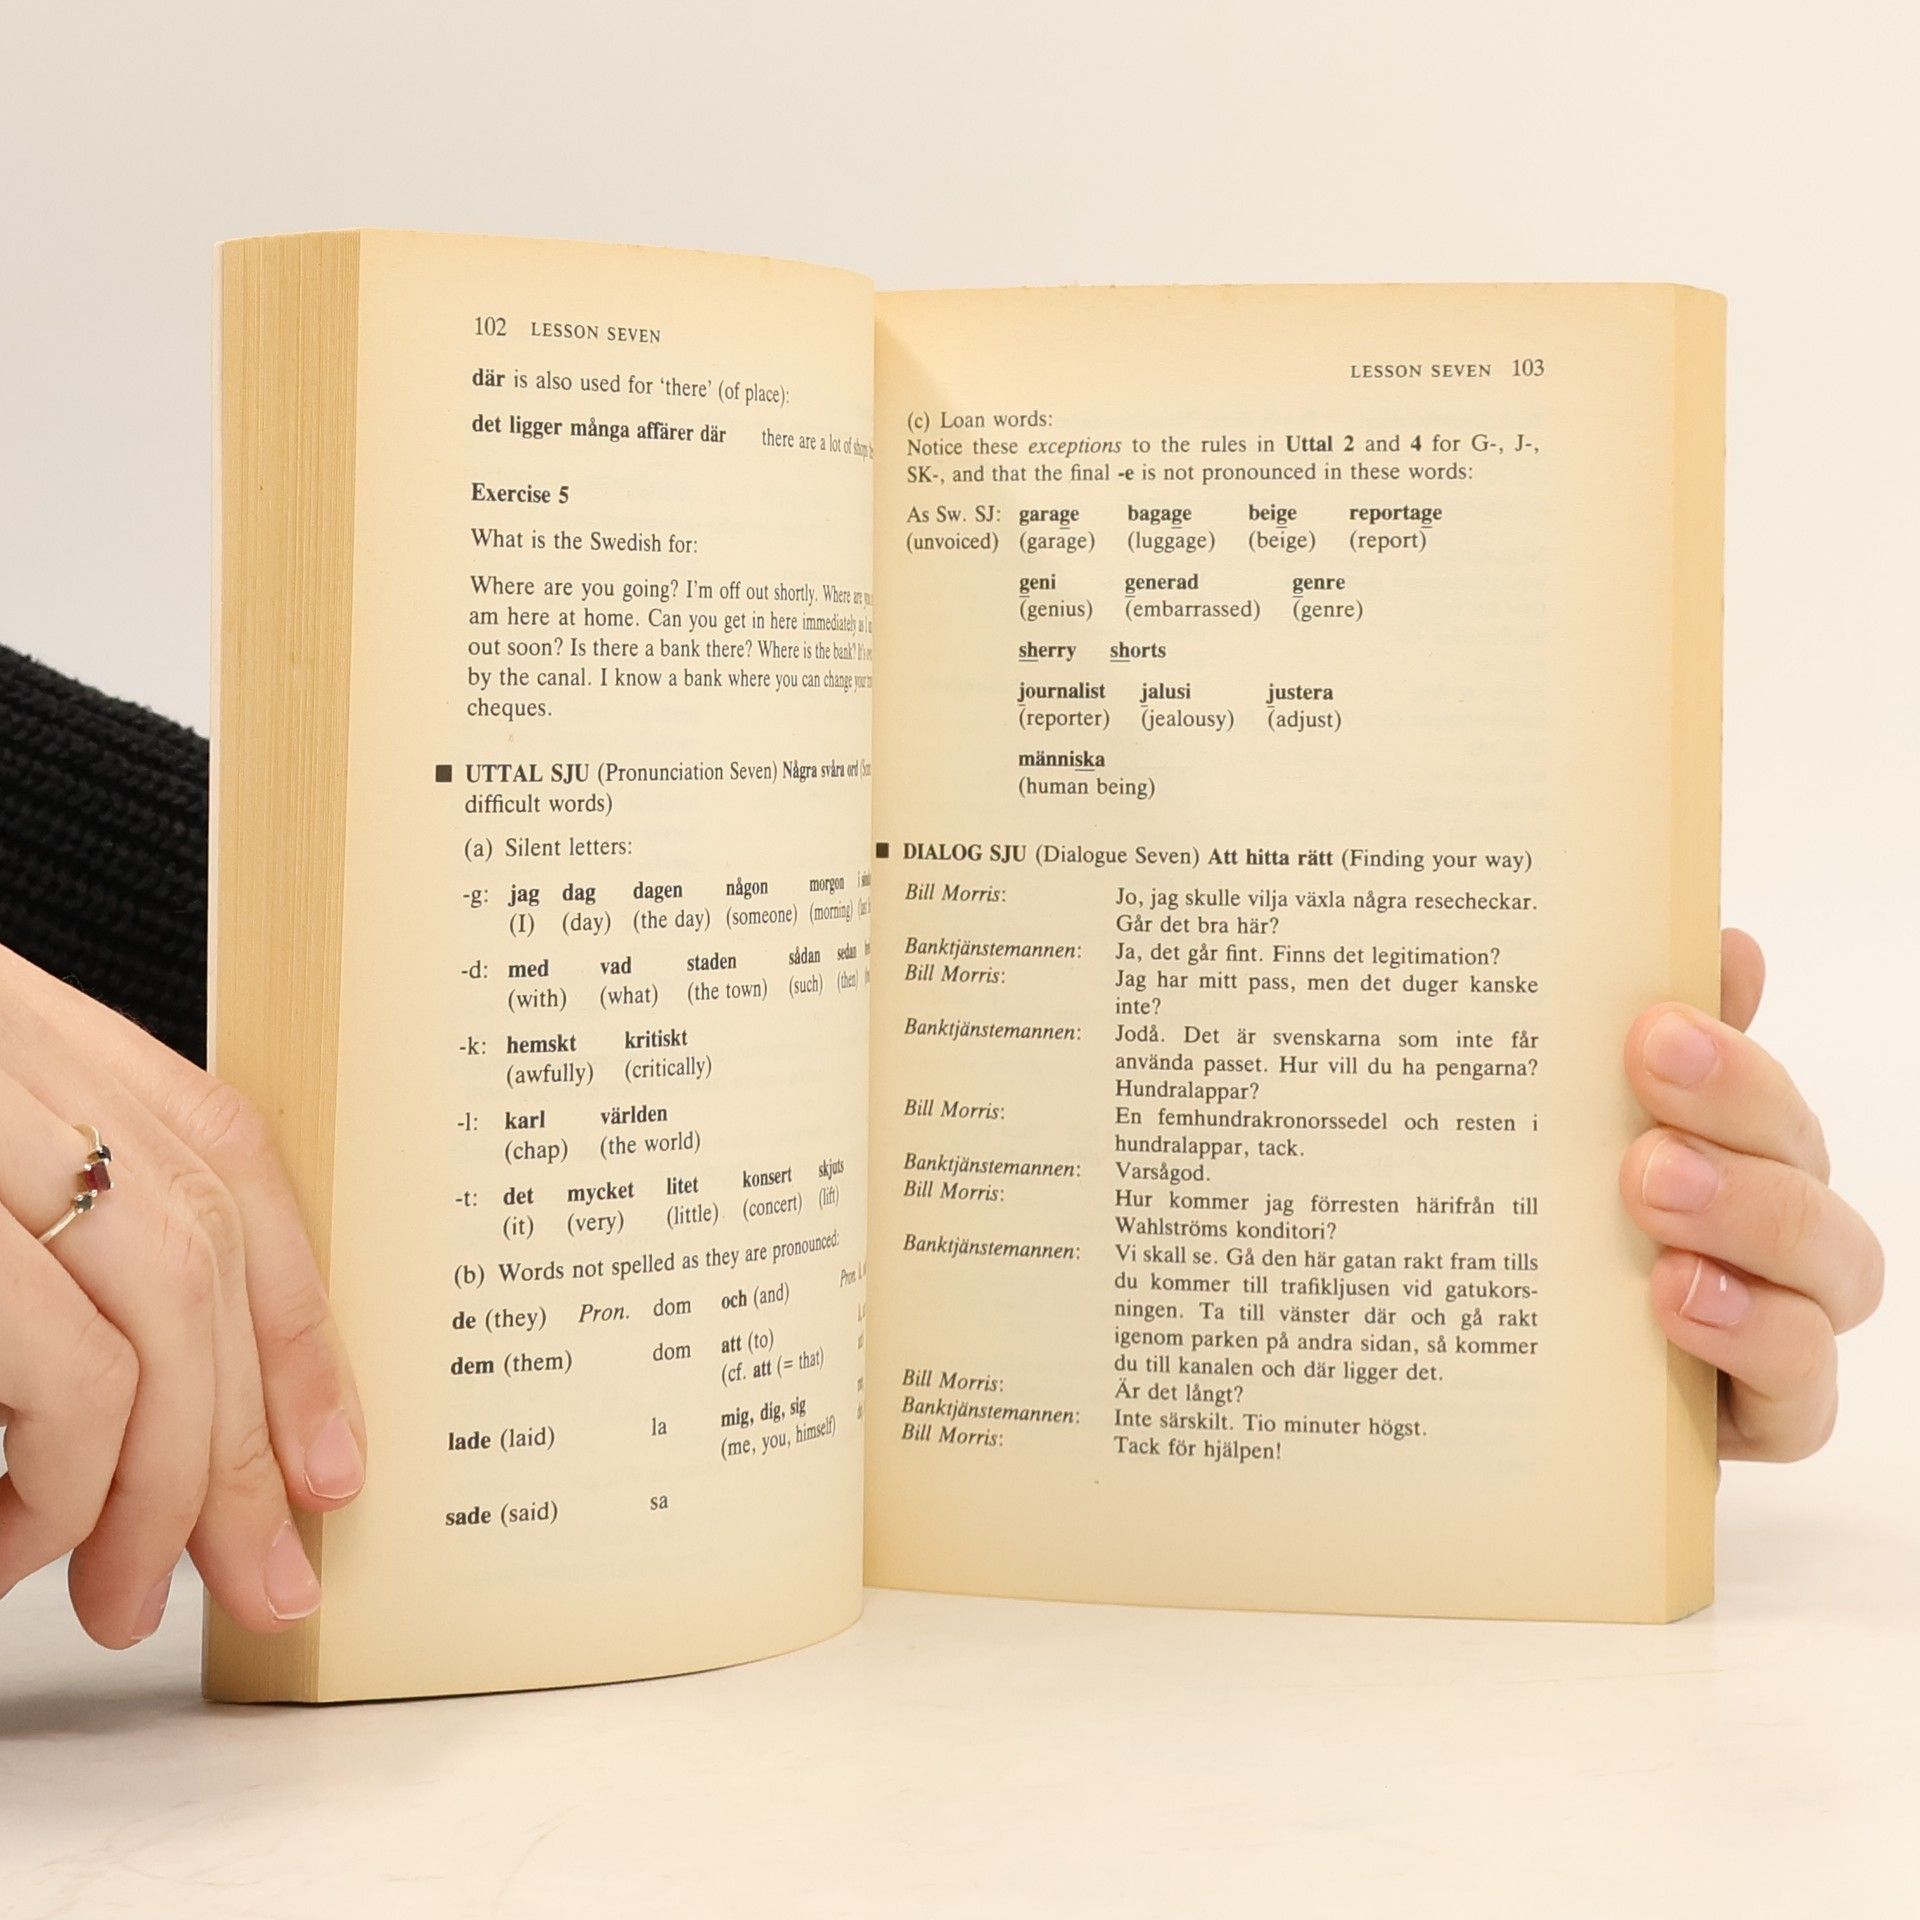 102 LESSON SEVEN
där is also used for ‘there’ (of place):
det ligger många affärer där there are a lot of shops
Exercise 5
What is the Swedish for:
Where are you going? I'm off out shortly. Where are
am here at home. Can you get in here immediately as I
out soon? Is there a bank there? Where is the bank? It's
by the canal. I know a bank where you can change your
cheques.
■ UTTAL SJU (Pronunciation Seven) Några svåra ord
difficult words)
(a) Silent letters:
-g: jag dag dagen någon morgon i
(I) (day) (the day) (someone) (morning)
-d: med vad staden sådan sedan
(with) (what) (the town) (such) (then)
-k: hemskt kritiskt
(awfully) (critically)
-l: karl världen
(chap) (the world)
-t: det mycket litet konsert skjuts
(it) (very) (little) (concert) (lift)
(b) Words not spelled as they are pronounced:
Pron.
de (they) Pron. dom och (and)
dem (them) dom att (to)
(cf. att (= that)
lade (laid) la mig, dig, sig
(me, you, himself)
sade (said) sa
LESSON SEVEN 103
(c) Loan words:
Notice these exceptions to the rules in Uttal 2 and 4 for G-, J-,
SK-, and that the final -e is not pronounced in these words:
As Sw. SJ: garage bagage beige reportage
(unvoiced) (garage) (luggage) (beige) (report)
geni generad genre
(genius) (embarrassed) (genre)
sherry shorts
journalist jalusi justera
(reporter) (jealousy) (adjust)
människa
(human being)
■ DIALOG SJU (Dialogue Seven) Att hitta rätt (Finding your way)
Bill Morris: Jo, jag skulle vilja växla några resecheckar.
Går det bra här?
Banktjänstemannen: Ja, det går fint. Finns det legitimation?
Bill Morris: Jag har mitt pass, men det duger kanske
inte?
Banktjänstemannen: Jodå. Det är svenskarna som inte får
använda passet. Hur vill du ha pengarna?
Hundralappar?
Bill Morris: En femhundrakronorssedel och resten i
hundralappar, tack.
Banktjänstemannen: Varsågod.
Bill Morris: Hur kommer jag förresten härifrån till
Wahlströms konditori?
Banktjänstemannen: Vi skall se. Gå den här gatan rakt fram tills
du kommer till trafikljusen vid gatukors-
ningen. Ta till vänster där och gå rakt
igenom parken på andra sidan, så kommer
du till kanalen och där ligger det.
Bill Morris: Är det långt?
Banktjänstemannen: Inte särskilt. Tio minuter högst.
Bill Morris: Tack för hjälpen!